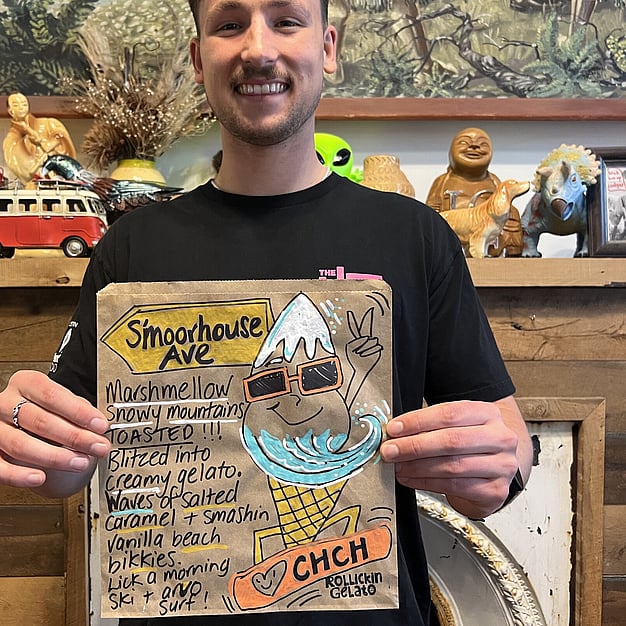 THE
S'moorhouse
Ave
Marshmellow
Snowy mountains
TOASTED !!!
Blitzed into
creamy gelato.
Waves of salted
caramel + smashin
vanilla beach
bikkies.
Lick a morning
ski + arvo
surf !
CHCH
ROLLICKIN
GELATO